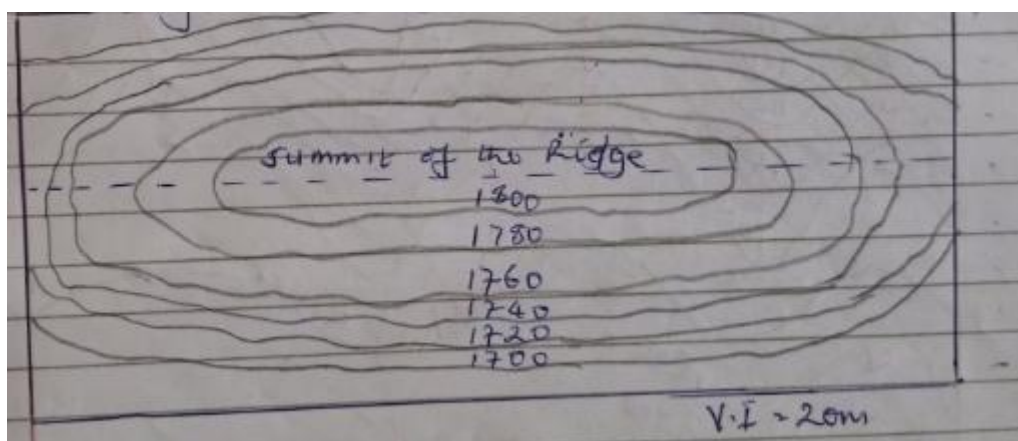 Summit of the Ridge
1800
1780
1760
1740
1720
1700
V.I = 20m